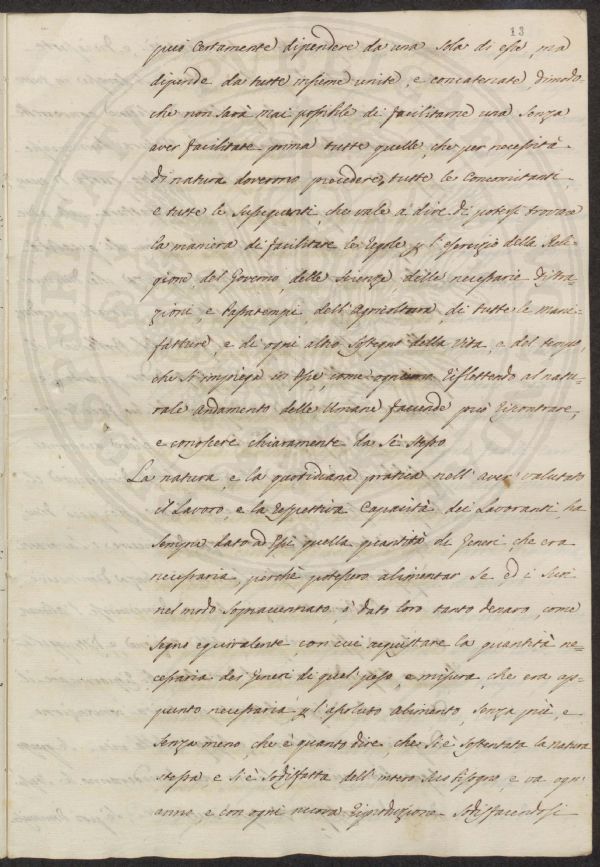 13
può certamente dipendere da una sola di esse, ma
dipende da tutte insieme unite, e concatenate, dimodo-
che non sarà mai possibile di facilitarne una senza
aver facilitate prima tutte quelle, che per necessità
di natura dovermo precedere, tutte le Concomitanti,
e tutte le susseguenti, che vale a dire di potersi trovare
la maniera di facilitare le Regole, p l'esercizio della Reli-
gione, del Governo, delle Scienze, delle necessarie Distra-
zioni, e Passatempi, dell'Agricoltura, di tutte le mani-
fatture, e di ogni altro sostegno della Vita, e del tempo,
che si impiega in Esse, come ognuno Riflettendo al natu-
rale andamento delle Umane faccende può riscontrare,
e conoscere chiaramente da sè stesso
La natura, e la quotidiana pratica nell'aver valutato
il Lavoro, e la Respettiva Capacità dei Lavoranti, ha
sempre dato ad Essi quella quantità di Generi, che era
necessaria, perchè potessero alimentar se, ed i suoi
nel modo sopraccennato, ò dato loro tanto denaro, come
segno equivalente, con cui acquistare la quantità ne-
cessaria dei Generi di quel peso, e misura, che era ap-
punto necessaria p l'assoluto alimento, senza più, e
senza meno, che è quanto dire, che si è sostentata la natura
stessa e si è sodisfatta dell'intero suo Bisogno, e va ogni
anno, e con ogni nuova Riproduzione sodisfacendosi